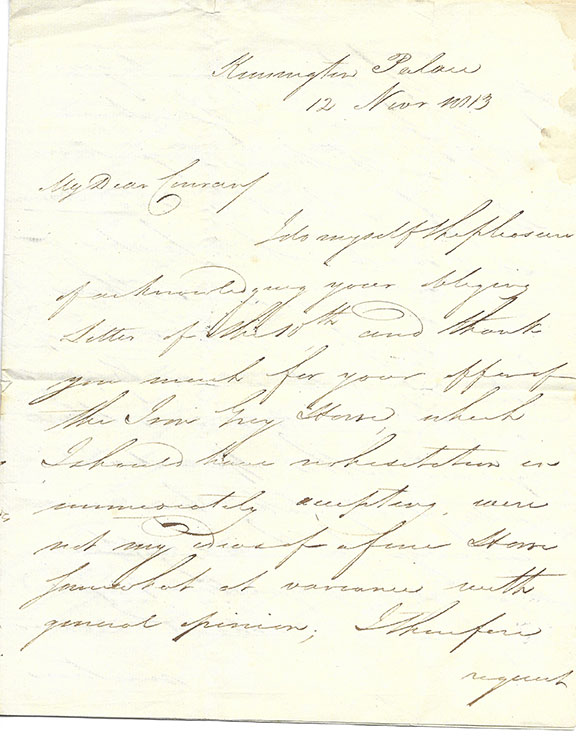 Kensington Palace
12 Novr 1813
My Dear
I do myself the pleasure
of acknowledging your obliging
Letter of the 10th and thank
you much for your offer of
the Iron Grey Horse, which
I should have no hesitation in
immediately accepting, were
not my ideas of a fine Horse
somewhat at variance with
general opinion; I therefore
request